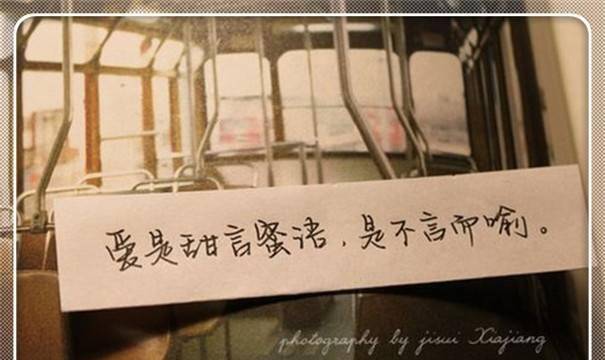 爱是甜言蜜语，是不言而喻。
photography by jisui Xiajiang